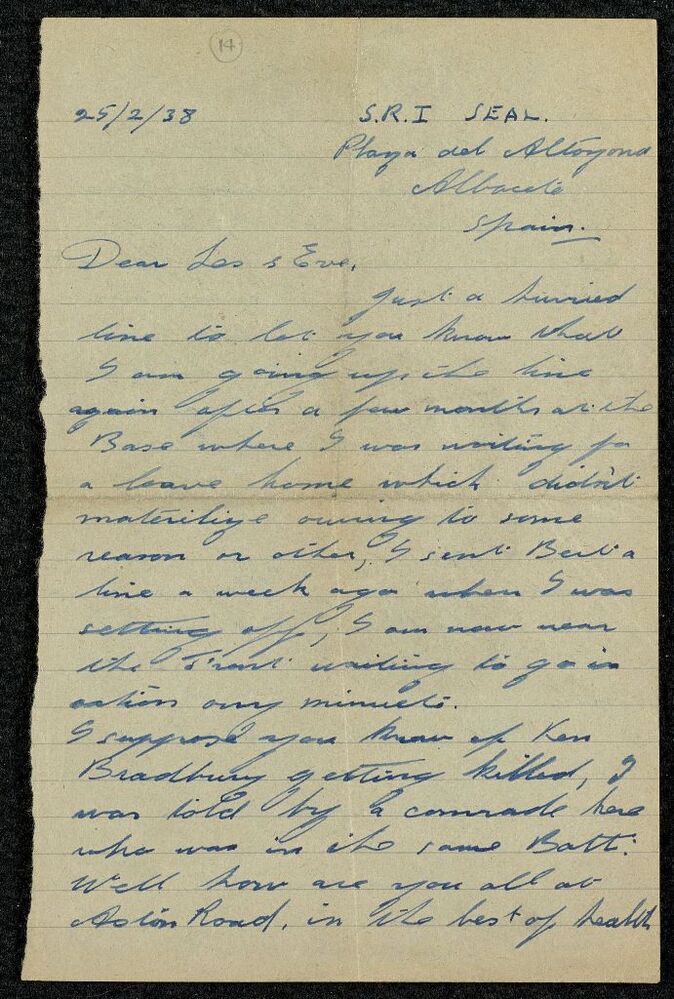 14
25/2/38 S.R.I SEAL.
Playa del Altozono
Albacete
Spain.
Dear Les & Eve,
Just a hurried
line to let you know that
I am going up the line
again after a few months at the
Base where I was waiting for
a leave home which didn't
materilize owing to some
reason or other, I sent Bert a
line a week ago when I was
setting off, I am now near
the Front waiting to go in
action any minute.
I suppose you know of Ken
Bradbury getting killed, I
was told by a comrade here
who was in the same Batt:
Well how are you all at
Aston Road, in the best of health